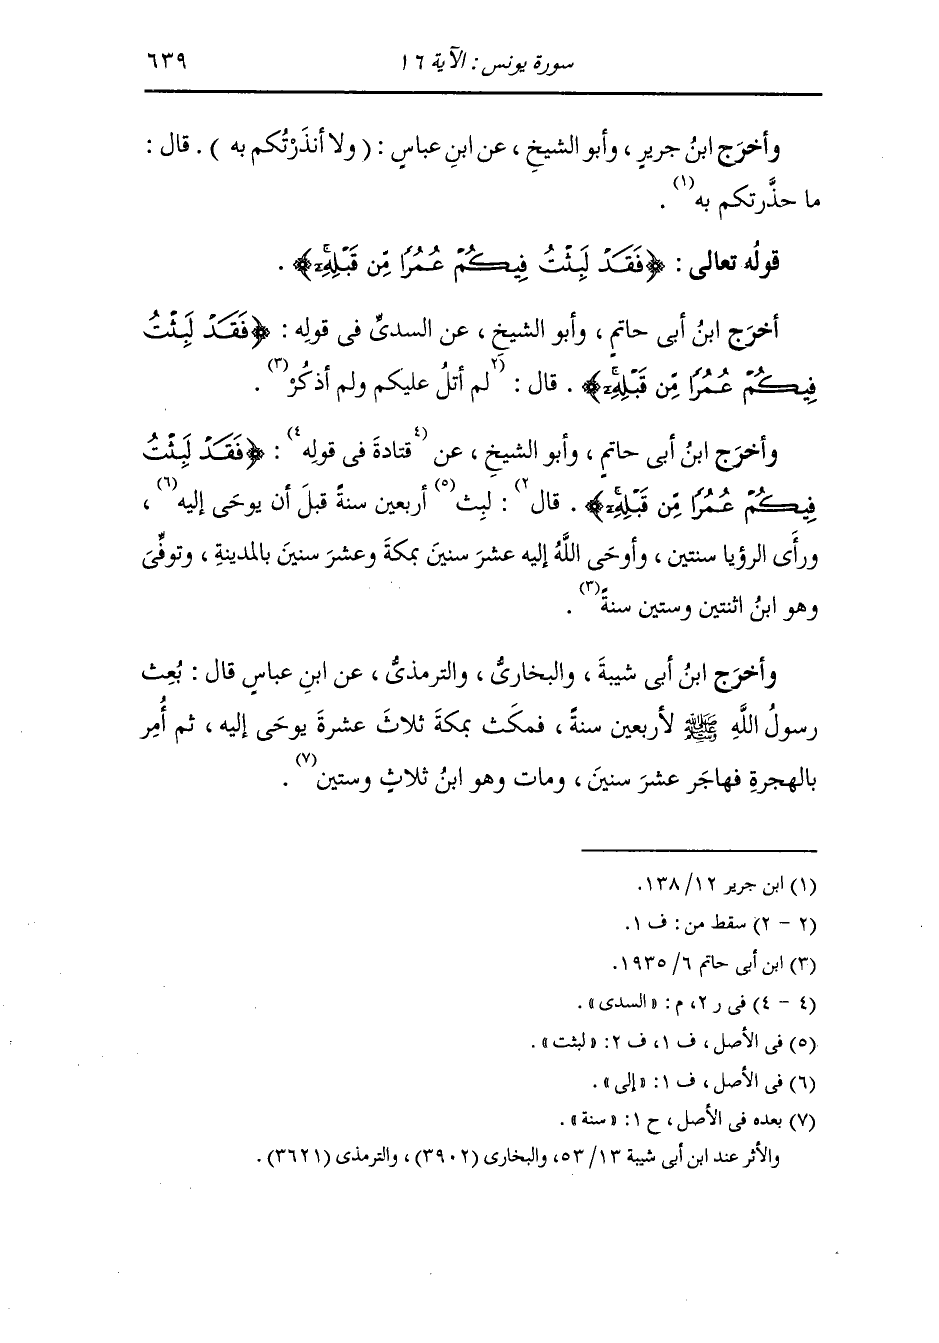 سورة يونس : الآية ١٦ ٦٣٩
وأخرَج ابنُ جريرٍ ، وأبو الشيخِ ، عن ابنِ عباسٍ : ( ولا أنذَرْتُكم به ) . قال :
ما حذَّرتكم به(١) .
قولُه تعالى : ﴿فَقَدْ لَبِثْتُ فِيكُمْ عُمُرًا مِّن قَبْلِهِۦٓ﴾ .
أخرَج ابنُ أبى حاتمٍ ، وأبو الشيخِ ، عن السدىِّ فى قولِه : ﴿فَقَدْ لَبِثْتُ
فِيكُمْ عُمُرًا مِّن قَبْلِهِۦٓ﴾ . قال : (٢لم أتلُ عليكم ولم أذكُرْ(٣) .
وأخرَج ابنُ أبى حاتمٍ ، وأبو الشيخِ ، عن (٤قتادةَ فى قولِه٤) : ﴿فَقَدْ لَبِثْتُ
فِيكُمْ عُمُرًا مِّن قَبْلِهِۦٓ﴾ . قال٢) : لبِث(٥) أربعين سنةً قبلَ أن يوحَى إليه(٦) ،
ورأَى الرؤيا سنتين ، وأوحَى اللَّهُ إليه عشرَ سنينَ بمكةَ وعشرَ سنينَ بالمدينةِ ، وتوفِّىَ
وهو ابنُ اثنتين وستين سنةً(٣) .
وأخرَج ابنُ أبى شيبةَ ، والبخارىُّ ، والترمذىُّ ، عن ابنِ عباسٍ قال : بُعِث
رسولُ اللَّهِ ﷺ لأربعين سنةً ، فمكَث بمكةَ ثلاثَ عشرةَ يوحَى إليه ، ثم أُمِر
بالهجرةِ فهاجَر عشرَ سنينَ ، ومات وهو ابنُ ثلاثٍ وستين(٧) .
(١) ابن جرير ١٢/ ١٣٨.
(٢ - ٢) سقط من : ف ١.
(٣) ابن أبى حاتم ٦/ ١٩٣٥.
(٤ - ٤) فى ر ٢، م : «السدى» .
(٥) فى الأصل ، ف ١، ف ٢: «لبثت» .
(٦) فى الأصل ، ف ١: «إلى» .
(٧) بعده فى الأصل ، ح ١: «سنة» .
والأثر عند ابن أبى شيبة ١٣/ ٥٣، والبخارى (٣٩٠٢) ، والترمذى (٣٦٢١) .